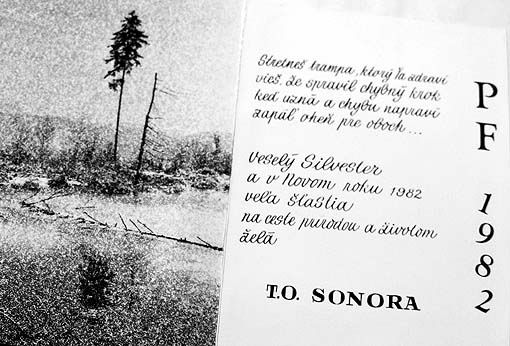 Stretneš trampa, ktorý Ťa zdraví
vieš, že spravil chybný krok
keď uzná a chybu napraví
zapáľ oheň pre oboch...
Veselý Silvester
a v Novom roku 1982
veľa šťastia
na ceste prírodou a životom
želá
T.O. SONORA
PF 1982